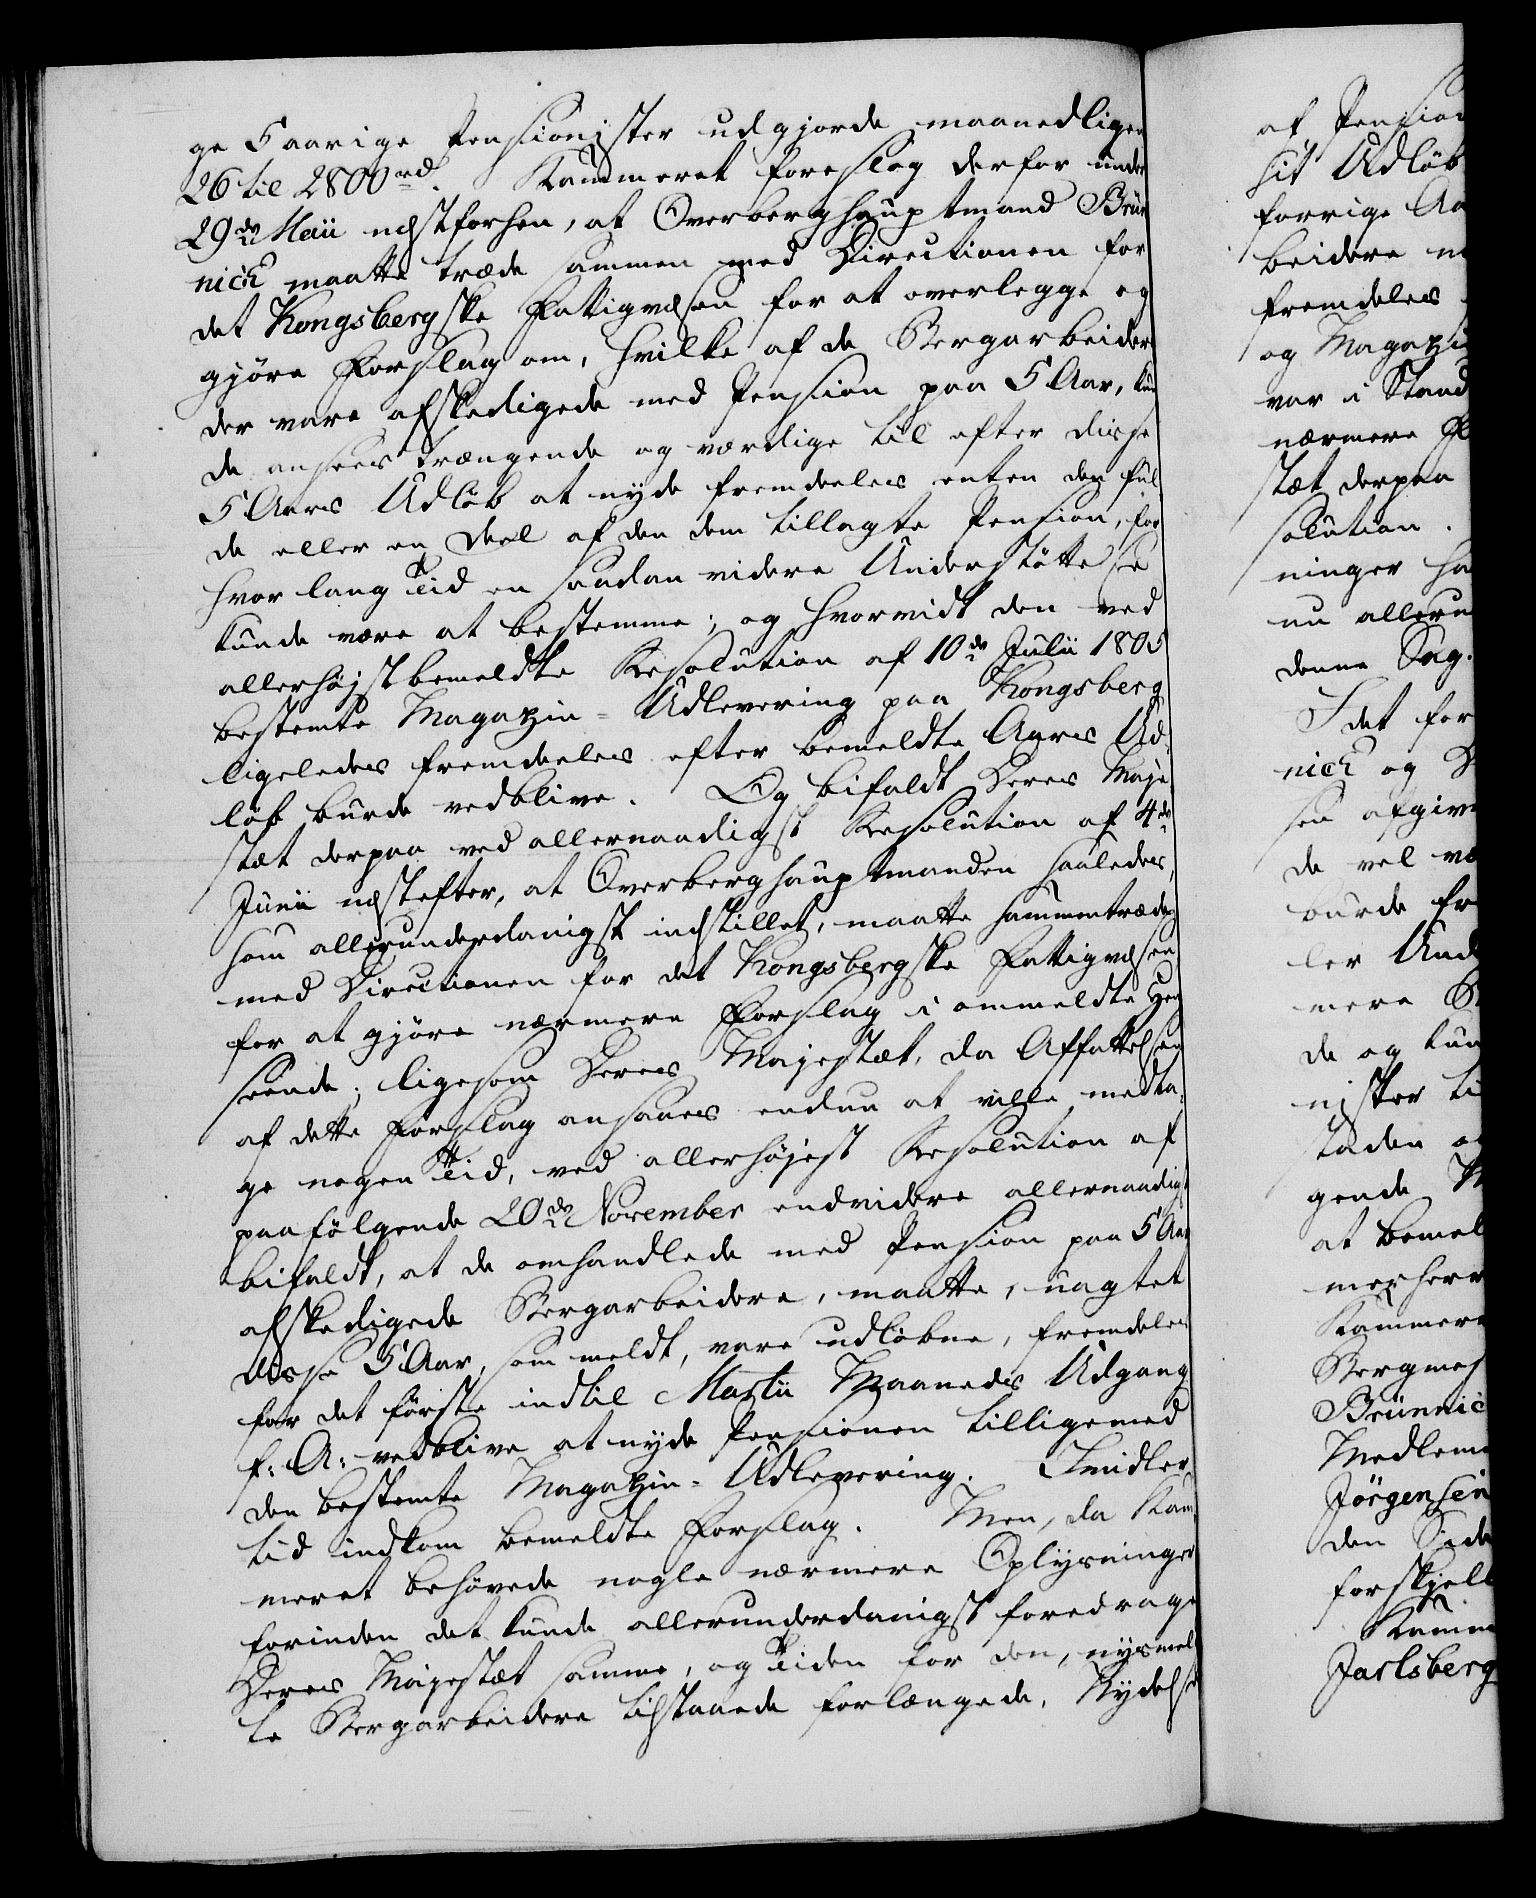 ge 5 aarige Pensionister udgjorde maanedligen
26 til 2800 rd. Kammeret foreslog derfor under
29de Maii næstforhen, at Overberghauptmand Brün
nich maatte træde sammen med Directionen for
det Kongsbergske Fattigvæsen for at overlegge og
gjöre Forslag om, hvilke af de Bergarbeidere
der vare afskedigede med Pension paa 5 Aar, kun
de ansees trængende og værdige til efter disse
5 Aars Udløb at nyde fremdeeles enten den ful
de eller en Deel af den dem tillagte Pension, for
hvor lang Tid en saadan videre Understöttelse
kunde være at bestemme; og hvorvidt den ved
allerhøjstbemeldte Resolution af 10de Julii 1805
bestemte Magazin-Udlevering paa Kongsberg
ligeledes fremdeeles efter bemeldte Aars Ud-
løb burde vedblive. Og bifaldt Deres Maje
stæt derpaa ved allernaadigst Resolution af 4de
Junii næstefter, at Overberghauptmanden saaledes,
som allerunderdanigst indstillet, maatte sammentræde
med Directionen for det Kongsbergske Fattigvæsen
for at gjöre nærmere Forslag i ommeldte Hen
seende; ligesom Deres Majestæt, da Affattelsen
af dette Forslag ansaaes endnu at ville medta-
ge nogen Tid, ved allerhøjest Resolution af
paafølgende 20de November endvidere allernaadigst
bifaldt, at de omhandlede med Pension paa 5 Aar
afskedigede Bergarbeidere, maatte, uagtet
disse 5 Aar, som meldt, vare udløbne, fremdeles
for det første indtil Martii Maaneds Udgang
f: A: vedblive at nyde Pensionen tilligemed
den bestemte Magazin-Udlevering. Imidler
tid indkom bemeldte Forslag. Men, da Kam
meret behøvede nogle nærmere Oplysninger
forinden det kunde allerunderdanigst foredrage
Deres Majestæt samme, og Tiden for den, nysmel
te Bergarbeidere tilstaaede forlængede, Nydelse
af Pension
sit Udløb
forrige Aa
beidere
fremdeles
og Magazin
var i Stand
nærmere
stæt derpaa
solution.
ninger ha
nu alleru
denne Sag.
I det for
nich og
sen afgiv
de vel
burde fr
ler Und
mere
de og kun
nister ti
staden
gende
at bemel
merherr
Kammere
Bergmes
Brünnic
Medlem
Jörgensen
den Side
forskjell
Kamm
Jarlsberg